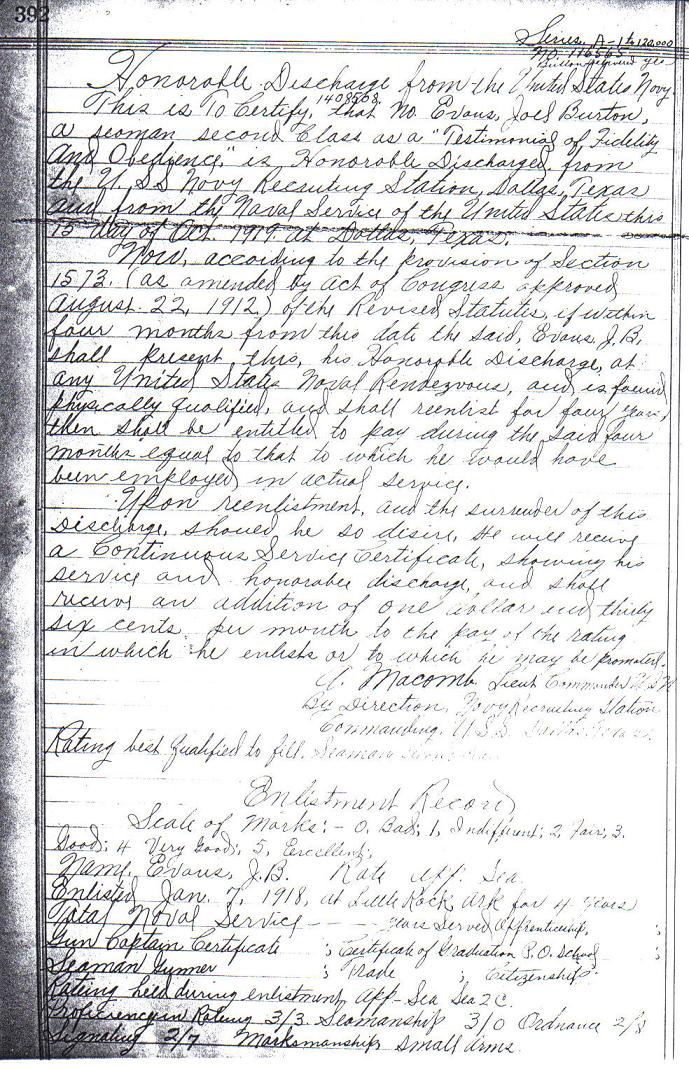 392
Series. A-1 to 120,000
No. 116565
Button yes
Honorable Discharge from the United States Navy.
1408508
This is To Certify, that No. Evans, Joel Burton,
a seaman second Class as a "Testimonial of Fidelity
And Obedience," is Honorable Discharged, from
the U.S.S Navy Recruting Station, Dallas, Texas
and from the Naval Service of the United States this
15 day of Oct. 1919 at Dallas, Texas.
Now, according to the provision of Section
1573. (as amended by Act of Congress approved
August. 22, 1912) of the Revised Statutes, if within
four months from this date the said, Evans, J.B.
shall present this, his Honorable Discharge, at
any United States Naval Rendezvous, and is found
physically qualified, and shall reenlist for four years,
then shall be entitled to pay during the said four
months equal to that to which he would have
been employed in actual service.
Upon reenlistment, and the surrender of this
discharge, should he so desire, he will receive
a Continuous Service Certificate, showing his
service and honorable discharge, and shall
receive an addition of one dollar and thirty
six cents per month to the pay of the rating
in which he enlists or to which he may be promoted.
A. Macomb Lieut Commander U.S.N
By Direction, Navy Recruiting Station
Commanding. U.S.S.
Rating best qualified to fill. Seaman
Enlistment Record
Scale of Marks:- 0. Bad; 1, Indifferent; 2, Fair; 3.
Good; 4 Very Good; 5, Excellent;
Name, Evans, J.B. Rate App. Sea.
Enlisted Jan. 7, 1918, at Little Rock, Ark for 4 years
Total Naval Service - - - years Served Apprenticeship,
Gun Captain Certificate ; Certificate of Graduation P.O. School ;
Seaman Gunner ; Trade ; Citizenship
Rating held during enlistment, App-Sea Sea 2C.
Proficiency in Rating 3/3 Seamanship 3/0 Ordnance 2/8
Signaling 2/7 Marksmanship, small arms.